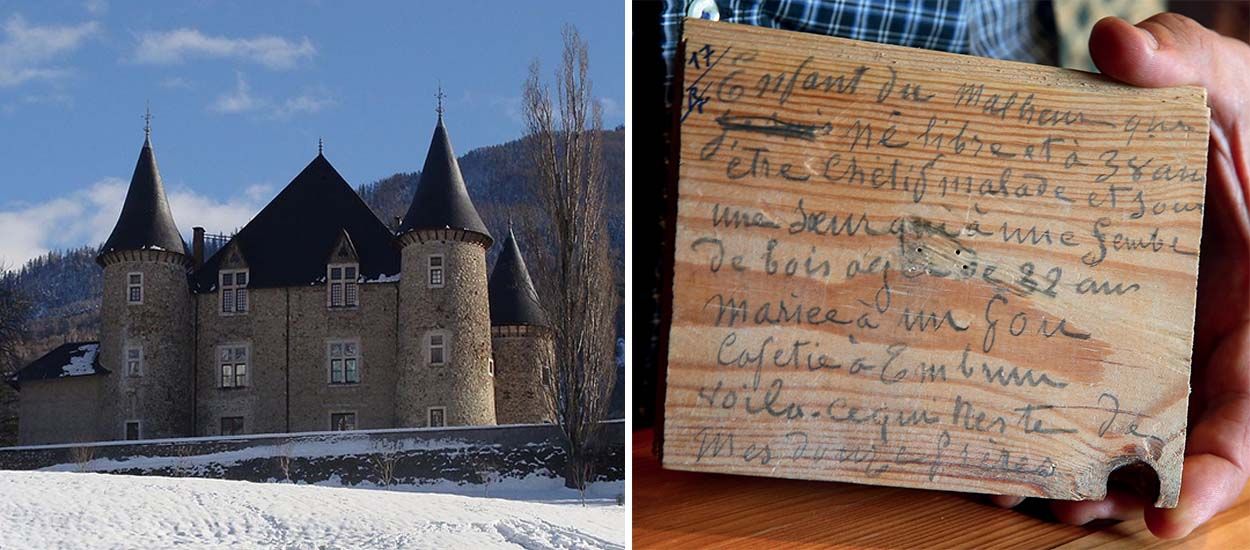 17/
Br
Enfant du Malheur que
né libre et à 38 an
j'être chétif malade et pour
une sœur qui à une Jembe
de bois agée de 32 ans
Mariee à un fou
Cafetie à Embrun
voila ce qui Reste de
Mes douze frères